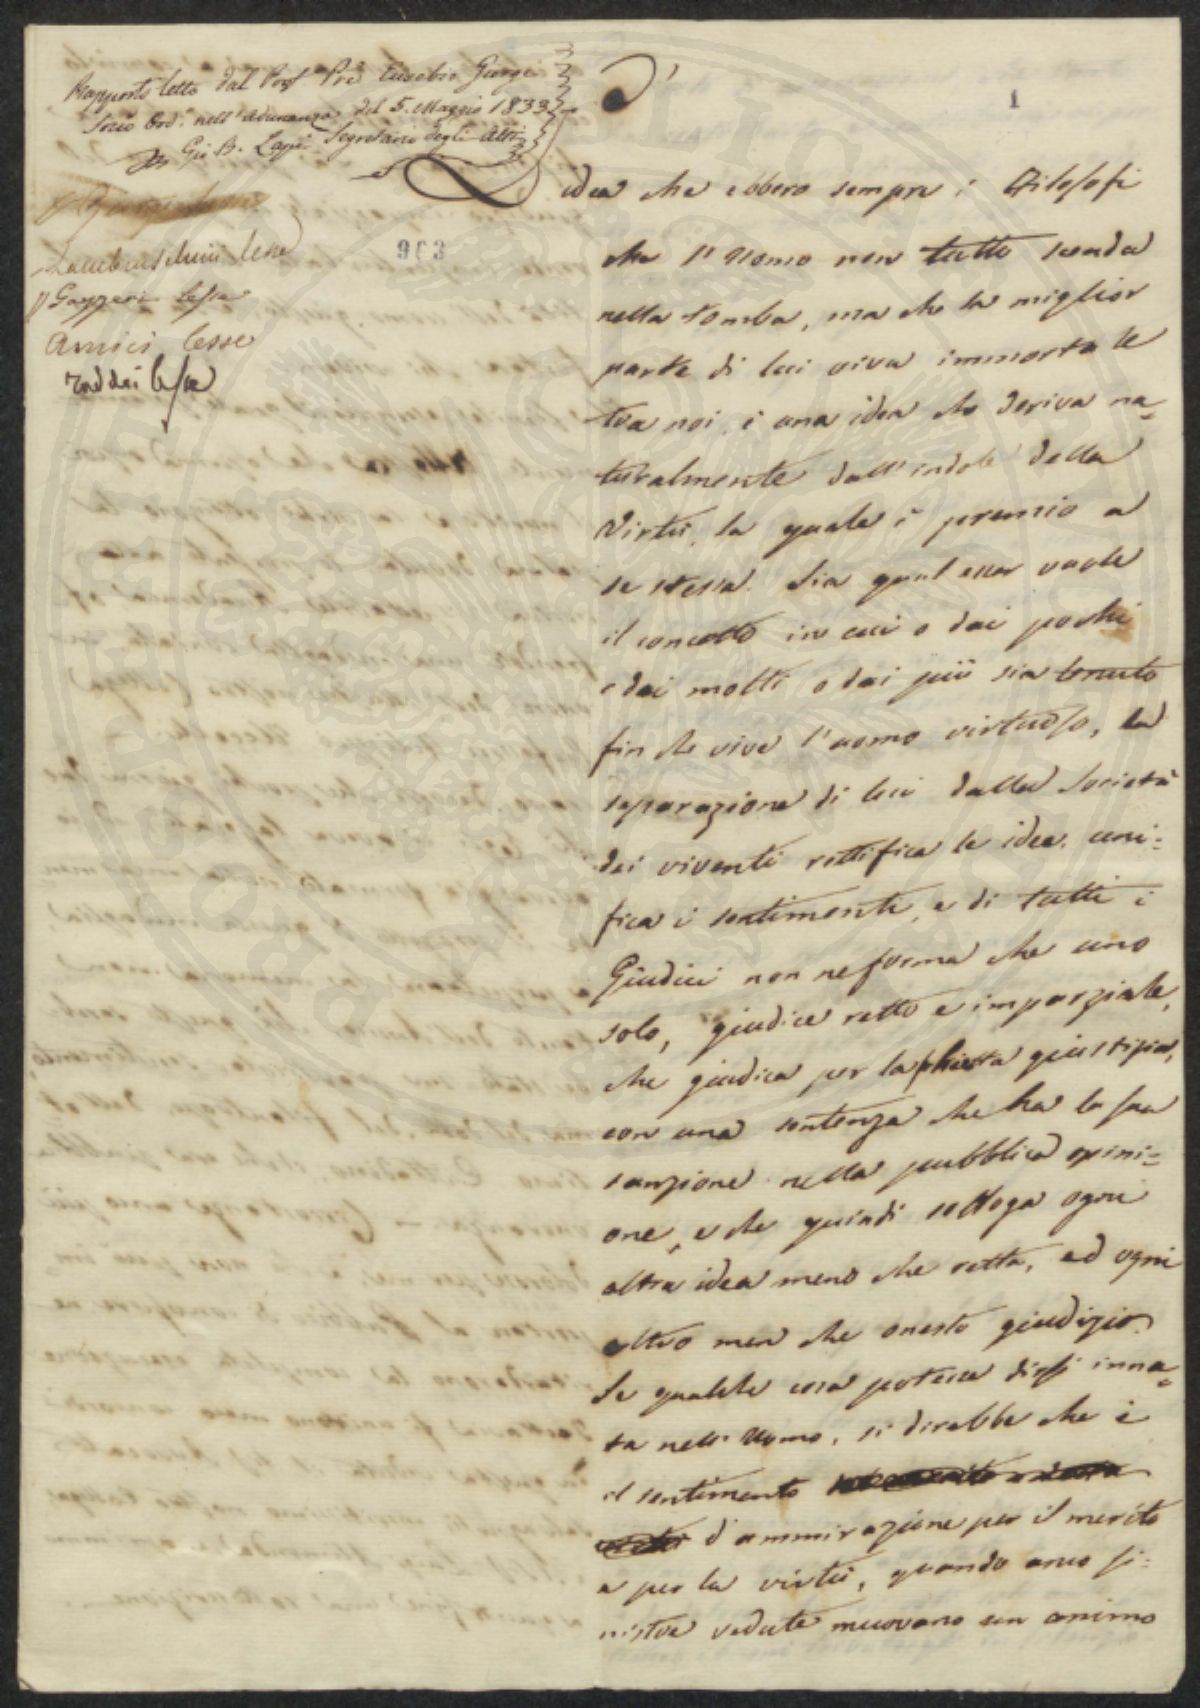 Rapporto letto dal Prof.e Pre Eusebio Giorgi
Socio Ord.o nell'adunanza del 5. Maggio 1833
Gio B. Lapi Segretario degli Atti
Lambruschini lesse
Gazzeri lesse
Amici lesse
Taddei lesse
903
1
L'idea che ebbero sempre i Filosofi
che l'Uomo non tutto scenda
nella tomba, ma che la miglior
parte di lui viva immortale
tra noi, è una idea che deriva na=
turalmente dall'indole della
Virtù, la quale è premio a
se stessa. Sia qual esser vuole
il concetto in cui o dai pochi
o dai molti o dai più sia tenuto
finche vive l'uomo virtuoso, la
separazione di lui dalla Società
dei viventi rettifica le idee, uni=
fica i sentimenti, e di tutti i
Giudici non ne forma che uno
solo, giudice retto e imparziale,
che giudica per la schietta giustizia,
con una sentenza che ha la sua
sanzione nella pubblica opini=
one, e che quindi soffoga ogni
altra idea meno che retta, ed ogni
altro men che onesto giudizio.
Se qualche cosa potesse dirsi inna=
ta nell'Uomo, si direbbe che è
il sentimento
d'ammirazione per il merito
e per la virtù, quando anco si=
nistre vedute muovano un animo